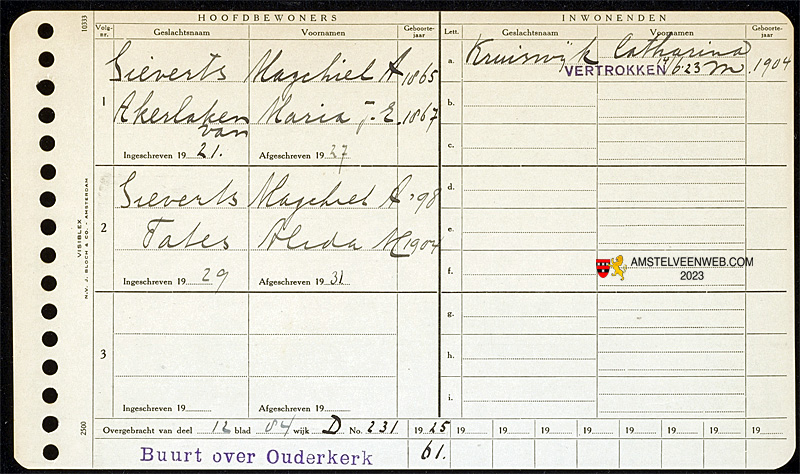 HOOFDBEWONERS
INWONENDEN
10333
Volg-nr.
Geslachtsnaam
Voornamen
Geboorte-jaar
Lett.
Geslachtsnaam
Voornamen
Geboorte-jaar
1
Sieverts Machiel A 1865
a. Kruiswijk Catharina 1904
VERTROKKEN
Akerlaken van Maria J. E. 1867
b.
Ingeschreven 19 21. Afgeschreven 19 27
c.
2
Sieverts Machiel A '98
d.
Tates Alida M 1904
e.
Ingeschreven 19 29 Afgeschreven 19 31
f.
AMSTELVEENWEB.COM
2023
3
g.
h.
Ingeschreven 19 Afgeschreven 19
i.
VISIBLEX
N.V. J. BLOCH & CO. - AMSTERDAM
2500
Overgebracht van deel 12 blad 84 wijk D No. 231 19 25 19 19 19 19 19 19 19
Buurt over Ouderkerk 61.